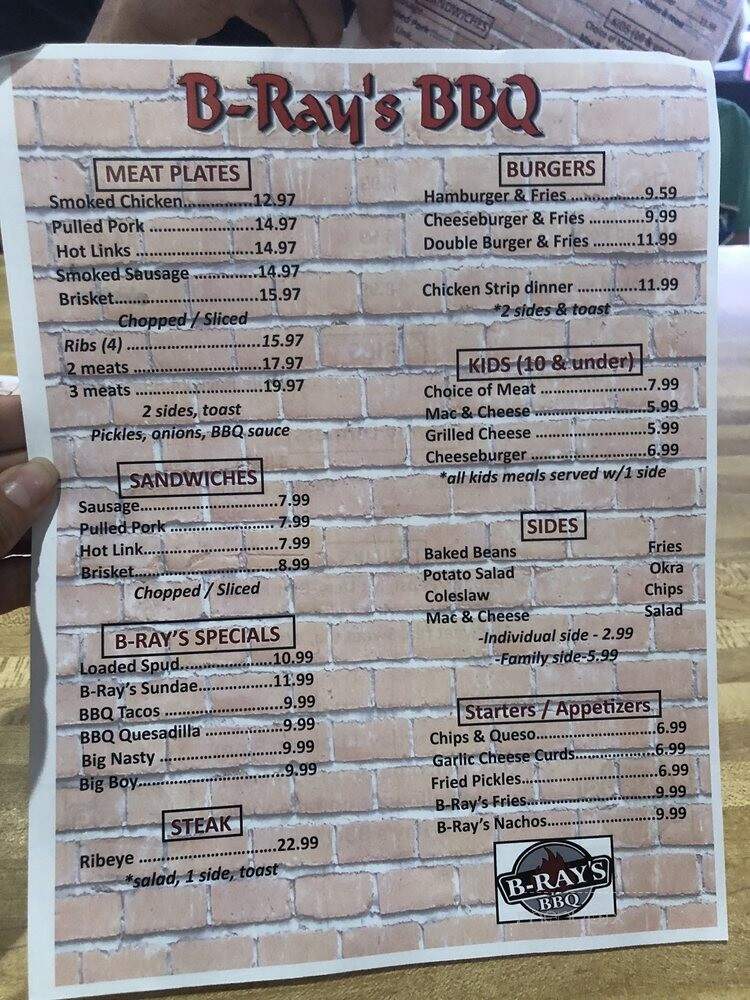 B-Ray's BBQ
MEAT PLATES
Smoked Chicken...............12.97
Pulled Pork .......................14.97
Hot Links ..........................14.97
Smoked Sausage ..............14.97
Brisket................................15.97
Chopped / Sliced
Ribs (4) ..............................15.97
2 meats ............................17.97
3 meats ............................19.97
2 sides, toast
Pickles, onions, BBQ sauce
SANDWICHES
Sausage..............................7.99
Pulled Pork .......................7.99
Hot Link.............................7.99
Brisket...............................8.99
Chopped / Sliced
B-RAY'S SPECIALS
Loaded Spud....................10.99
B-Ray's Sundae................11.99
BBQ Tacos .........................9.99
BBQ Quesadilla .................9.99
Big Nasty ...........................9.99
Big Boy................................9.99
STEAK
Ribeye ..............................22.99
*salad, 1 side, toast
BURGERS
Hamburger & Fries ................9.59
Cheeseburger & Fries ............9.99
Double Burger & Fries ..........11.99
Chicken Strip dinner .............11.99
*2 sides & toast
KIDS (10 & under)
Choice of Meat .......................7.99
Mac & Cheese ........................5.99
Grilled Cheese ........................5.99
Cheeseburger .........................6.99
*all kids meals served w/1 side
SIDES
Baked Beans Fries
Potato Salad Okra
Coleslaw Chips
Mac & Cheese Salad
-Individual side - 2.99
-Family side-5.99
Starters / Appetizers
Chips & Queso..........................6.99
Garlic Cheese Curds..................6.99
Fried Pickles..............................6.99
B-Ray's Fries.............................9.99
B-Ray's Nachos.........................9.99
B-RAY'S
BBQ
SANDWICHES
KIDS (10 &
Choice of M